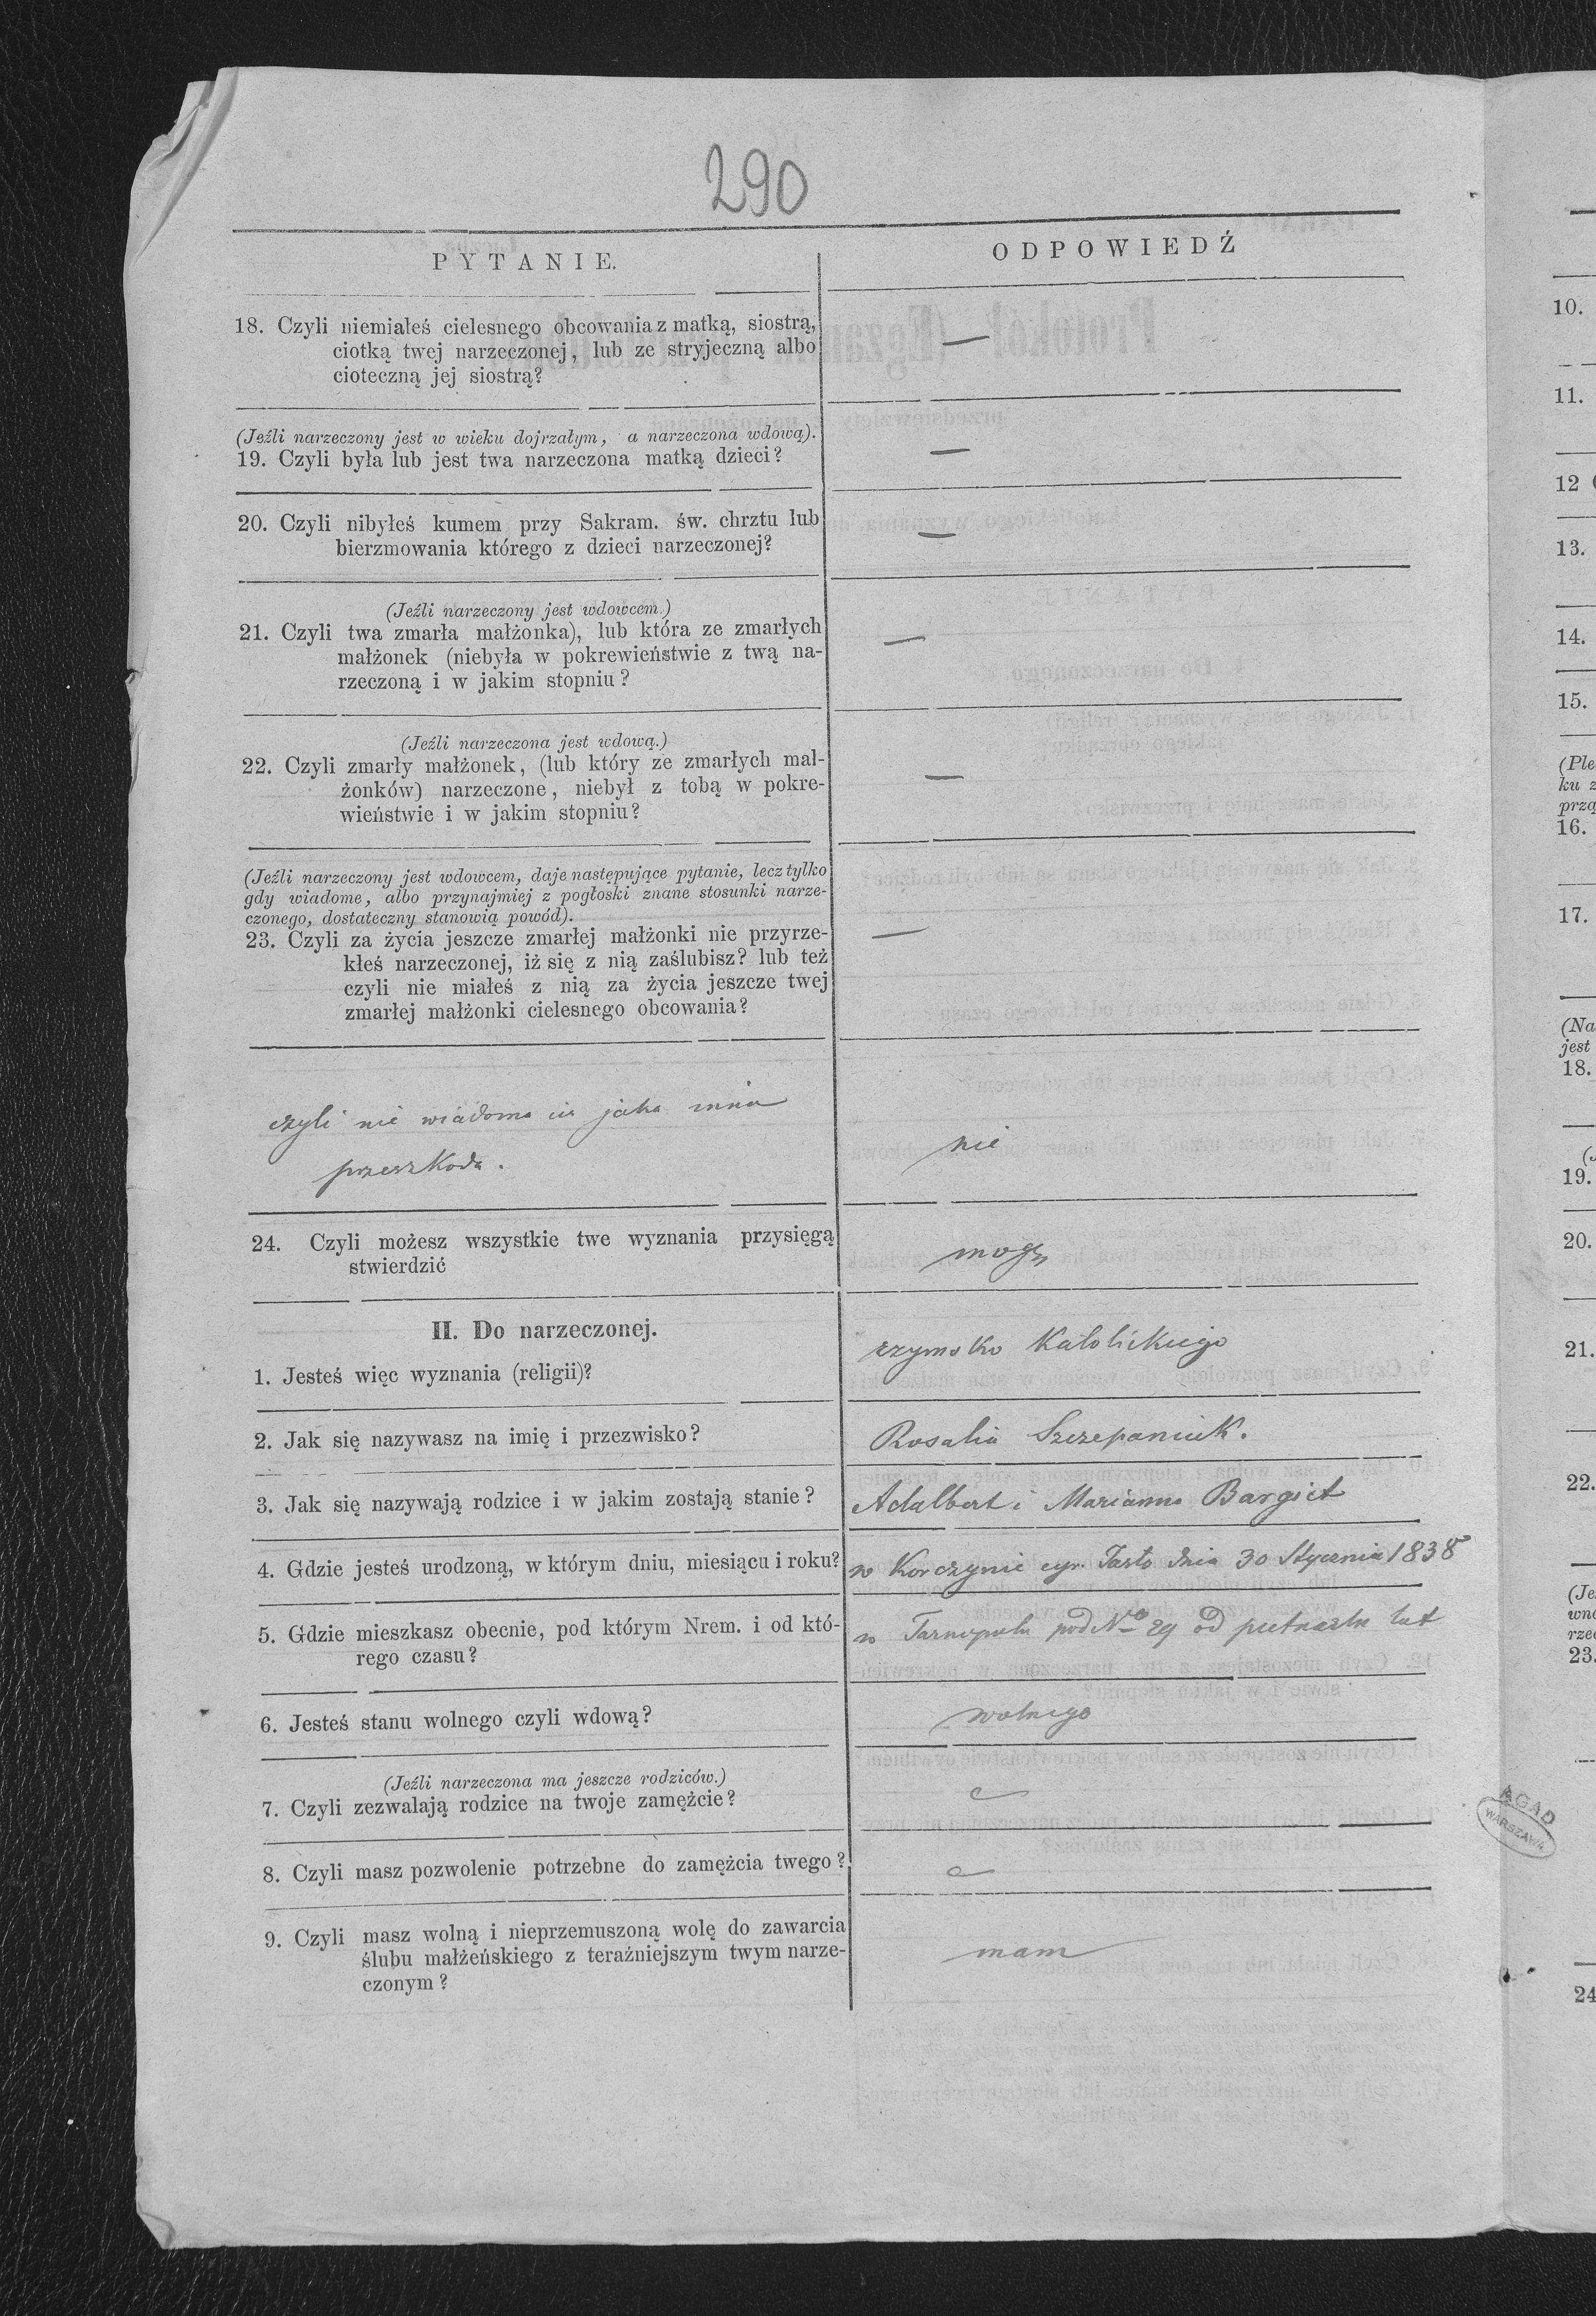 290
PYTANIE.
ODPOWIEDŹ
18. Czyli niemiałeś cielesnego obcowania z matką, siostrą,
ciotką twej narzeczonej, lub ze stryjeczną albo
cioteczną jej siostrą?
—
(Jeźli narzeczony jest w wieku dojrzałym, a narzeczona wdową).
19. Czyli była lub jest twa narzeczona matką dzieci?
—
20. Czyli nibyłeś kumem przy Sakram. św. chrztu lub
bierzmowania którego z dzieci narzeczonej?
—
(Jeźli narzeczony jest wdowcem.)
21. Czyli twa zmarła małżonka), lub która ze zmarłych
małżonek (niebyła w pokrewieństwie z twą na-
rzeczoną i w jakim stopniu?
—
(Jeźli narzeczona jest wdową.)
22. Czyli zmarły małżonek, (lub który ze zmarłych mał-
żonków) narzeczone, niebył z tobą w pokre-
wieństwie i w jakim stopniu?
—
(Jeźli narzeczony jest wdowcem, daje następujące pytanie, lecz tylko
gdy wiadome, albo przynajmiej z pogłoski znane stosunki narze-
czonego, dostateczny stanowią powód).
23. Czyli za życia jeszcze zmarłej małżonki nie przyrze-
kłeś narzeczonej, iż się z nią zaślubisz? lub też
czyli nie miałeś z nią za życia jeszcze twej
zmarłej małżonki cielesnego obcowania?
—
czyli nie wiadoma jaka inna
przeszkoda.
nie
24. Czyli możesz wszystkie twe wyznania przysięgą
stwierdzić
mogę
II. Do narzeczonej.
1. Jesteś więc wyznania (religii)?
rzymsko Katolickiego
2. Jak się nazywasz na imię i przezwisko?
Rosalia Szczepaniuk.
3. Jak się nazywają rodzice i w jakim zostają stanie?
Adalbert i Marianna Bargiet
4. Gdzie jesteś urodzoną, w którym dniu, miesiącu i roku?
w Korczynie cyr. Jasło dnia 30 Stycznia 1838
5. Gdzie mieszkasz obecnie, pod którym Nrem. i od któ-
rego czasu?
w Tarnopolu pod No 29 od pietnastu lat
6. Jesteś stanu wolnego czyli wdową?
wolnego
(Jeźli narzeczona ma jeszcze rodziców.)
7. Czyli zezwalają rodzice na twoje zamężcie?
8. Czyli masz pozwolenie potrzebne do zamężcia twego?
9. Czyli masz wolną i nieprzemuszoną wolę do zawarcia
ślubu małżeńskiego z teraźniejszym twym narze-
czonym?
mam
10.
11.
12
13.
14.
15.
(Ple
ku z
przą
16.
17.
(Na
jest
18.
19.
20.
21.
22.
(Je
wno
rzec
23.
24
AGAD
WARSZAWA